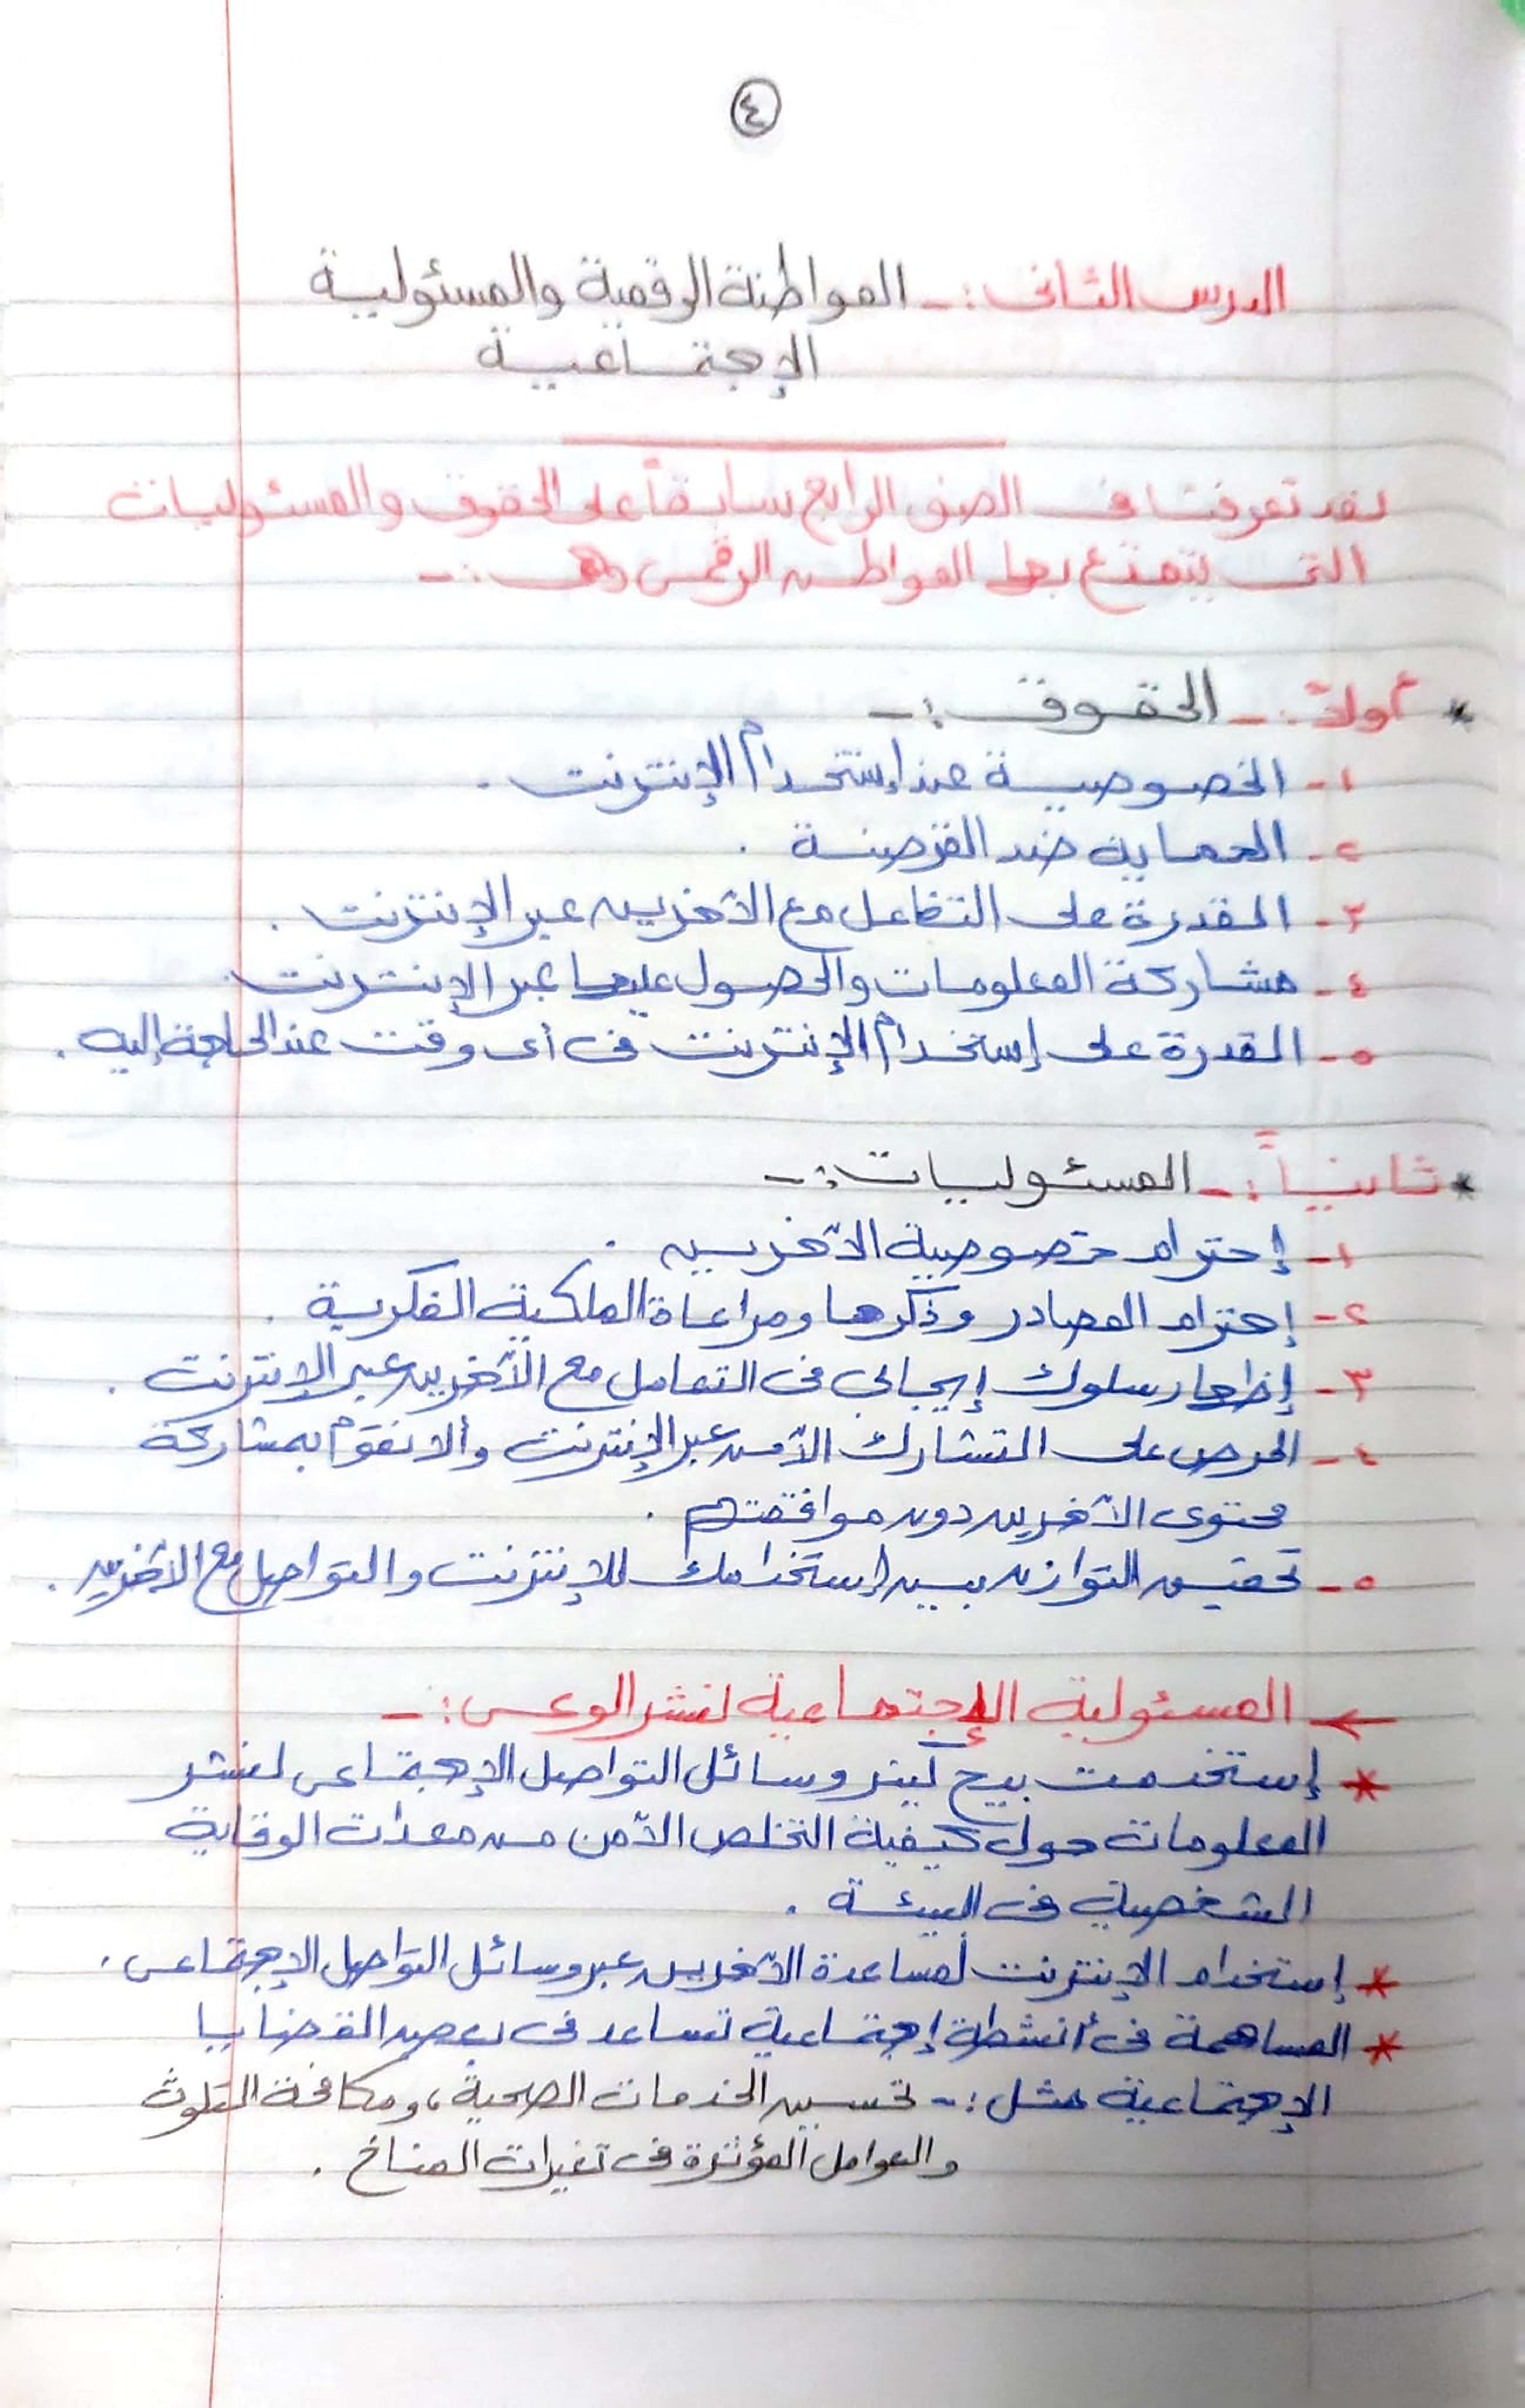 ٤
الدرس الثانى :- المواطنة الرقمية والمسئولية
الإجتماعية
لقد تعرفنا فى الصف الرابع سابقاً على الحقوق والمسئوليات
التى يتمتع بها المواطن الرقمى وهى :-
* أولاً :- الحقوق :-
١- الخصوصية عند إستخدام الإنترنت .
٢- الحماية ضد القرصنة .
٣- القدرة على التفاعل مع الآخرين عبر الإنترنت .
٤- مشاركة المعلومات والحصول عليها عبر الإنترنت .
٥- القدرة على إستخدام الإنترنت فى أى وقت عند الحاجة إليه .
* ثانياً :- المسئوليات :-
١- إحترام خصوصية الآخرين .
٢- إحترام المصادر وذكرها ومراعاة الملكية الفكرية .
٣- إظهار سلوك إيجابى فى التعامل مع الآخرين عبر الإنترنت .
٤- الحرص على التشارك الآمن عبر الإنترنت وألا نقوم بمشاركة
محتوى الآخرين دون موافقتهم .
٥- تحقيق التوازن بين إستخدامك للإنترنت والتواصل مع الآخرين .
← المسئولية الإجتماعية لنشر الوعى :-
* إستخدمت بيج كينر وسائل التواصل الإجتماعى لنشر
المعلومات حول كيفية التخلص الآمن من معدات الوقاية
الشخصية فى البيئة .
* إستخدام الإنترنت لمساعدة الآخرين عبر وسائل التواصل الإجتماعى .
* المساهمة فى أنشطة إجتماعية تساعد فى بعض القضايا
الإجتماعية مثل :- تحسين الخدمات الصحية ، ومكافحة التلوث
والعوامل المؤثرة فى تغيرات المناخ .